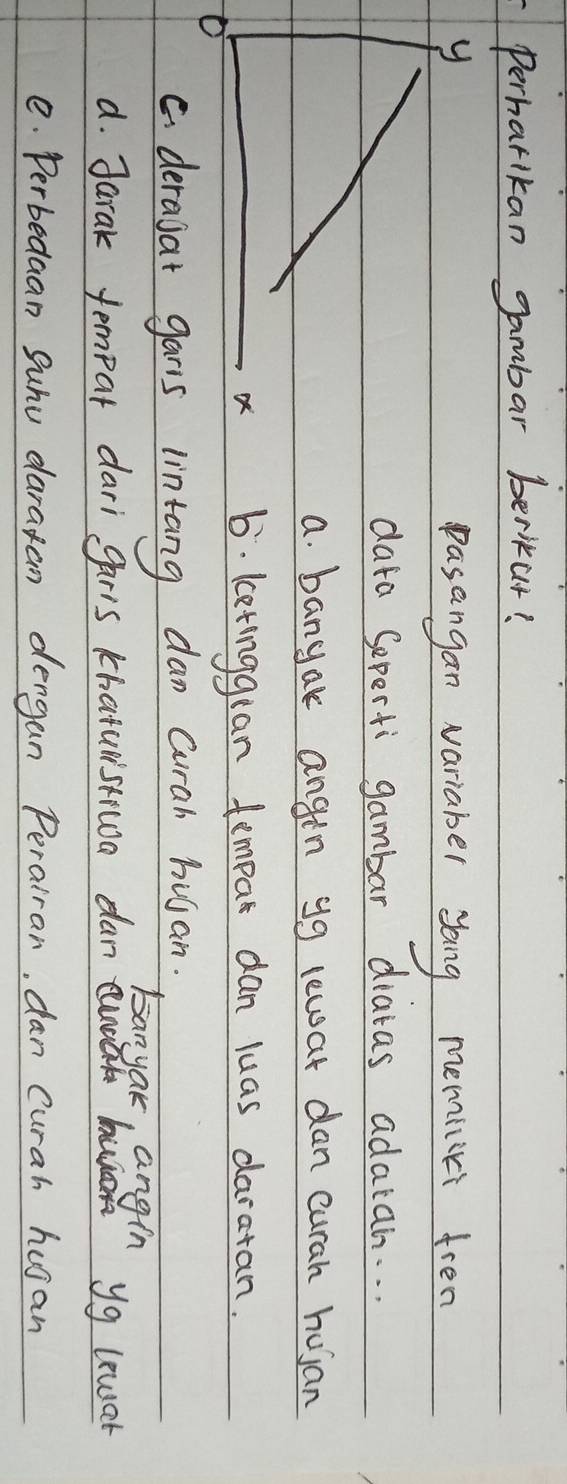 Perhatikan gambar berikut!
y
Pasangan variabel yang memiliki tren
data seperti gambar diatas adalah...
a. banyak angin yg lewat dan curah hujan
O
x
b. ketinggian tempat dan luas daratan.
c. derajat garis lintang dan curah hujan.
d. Jarak tempat dari garis khatulistiwa dan banyak angin yg lewat
e. Perbedaan suhu daratan dengan Perairan, dan curah hujan